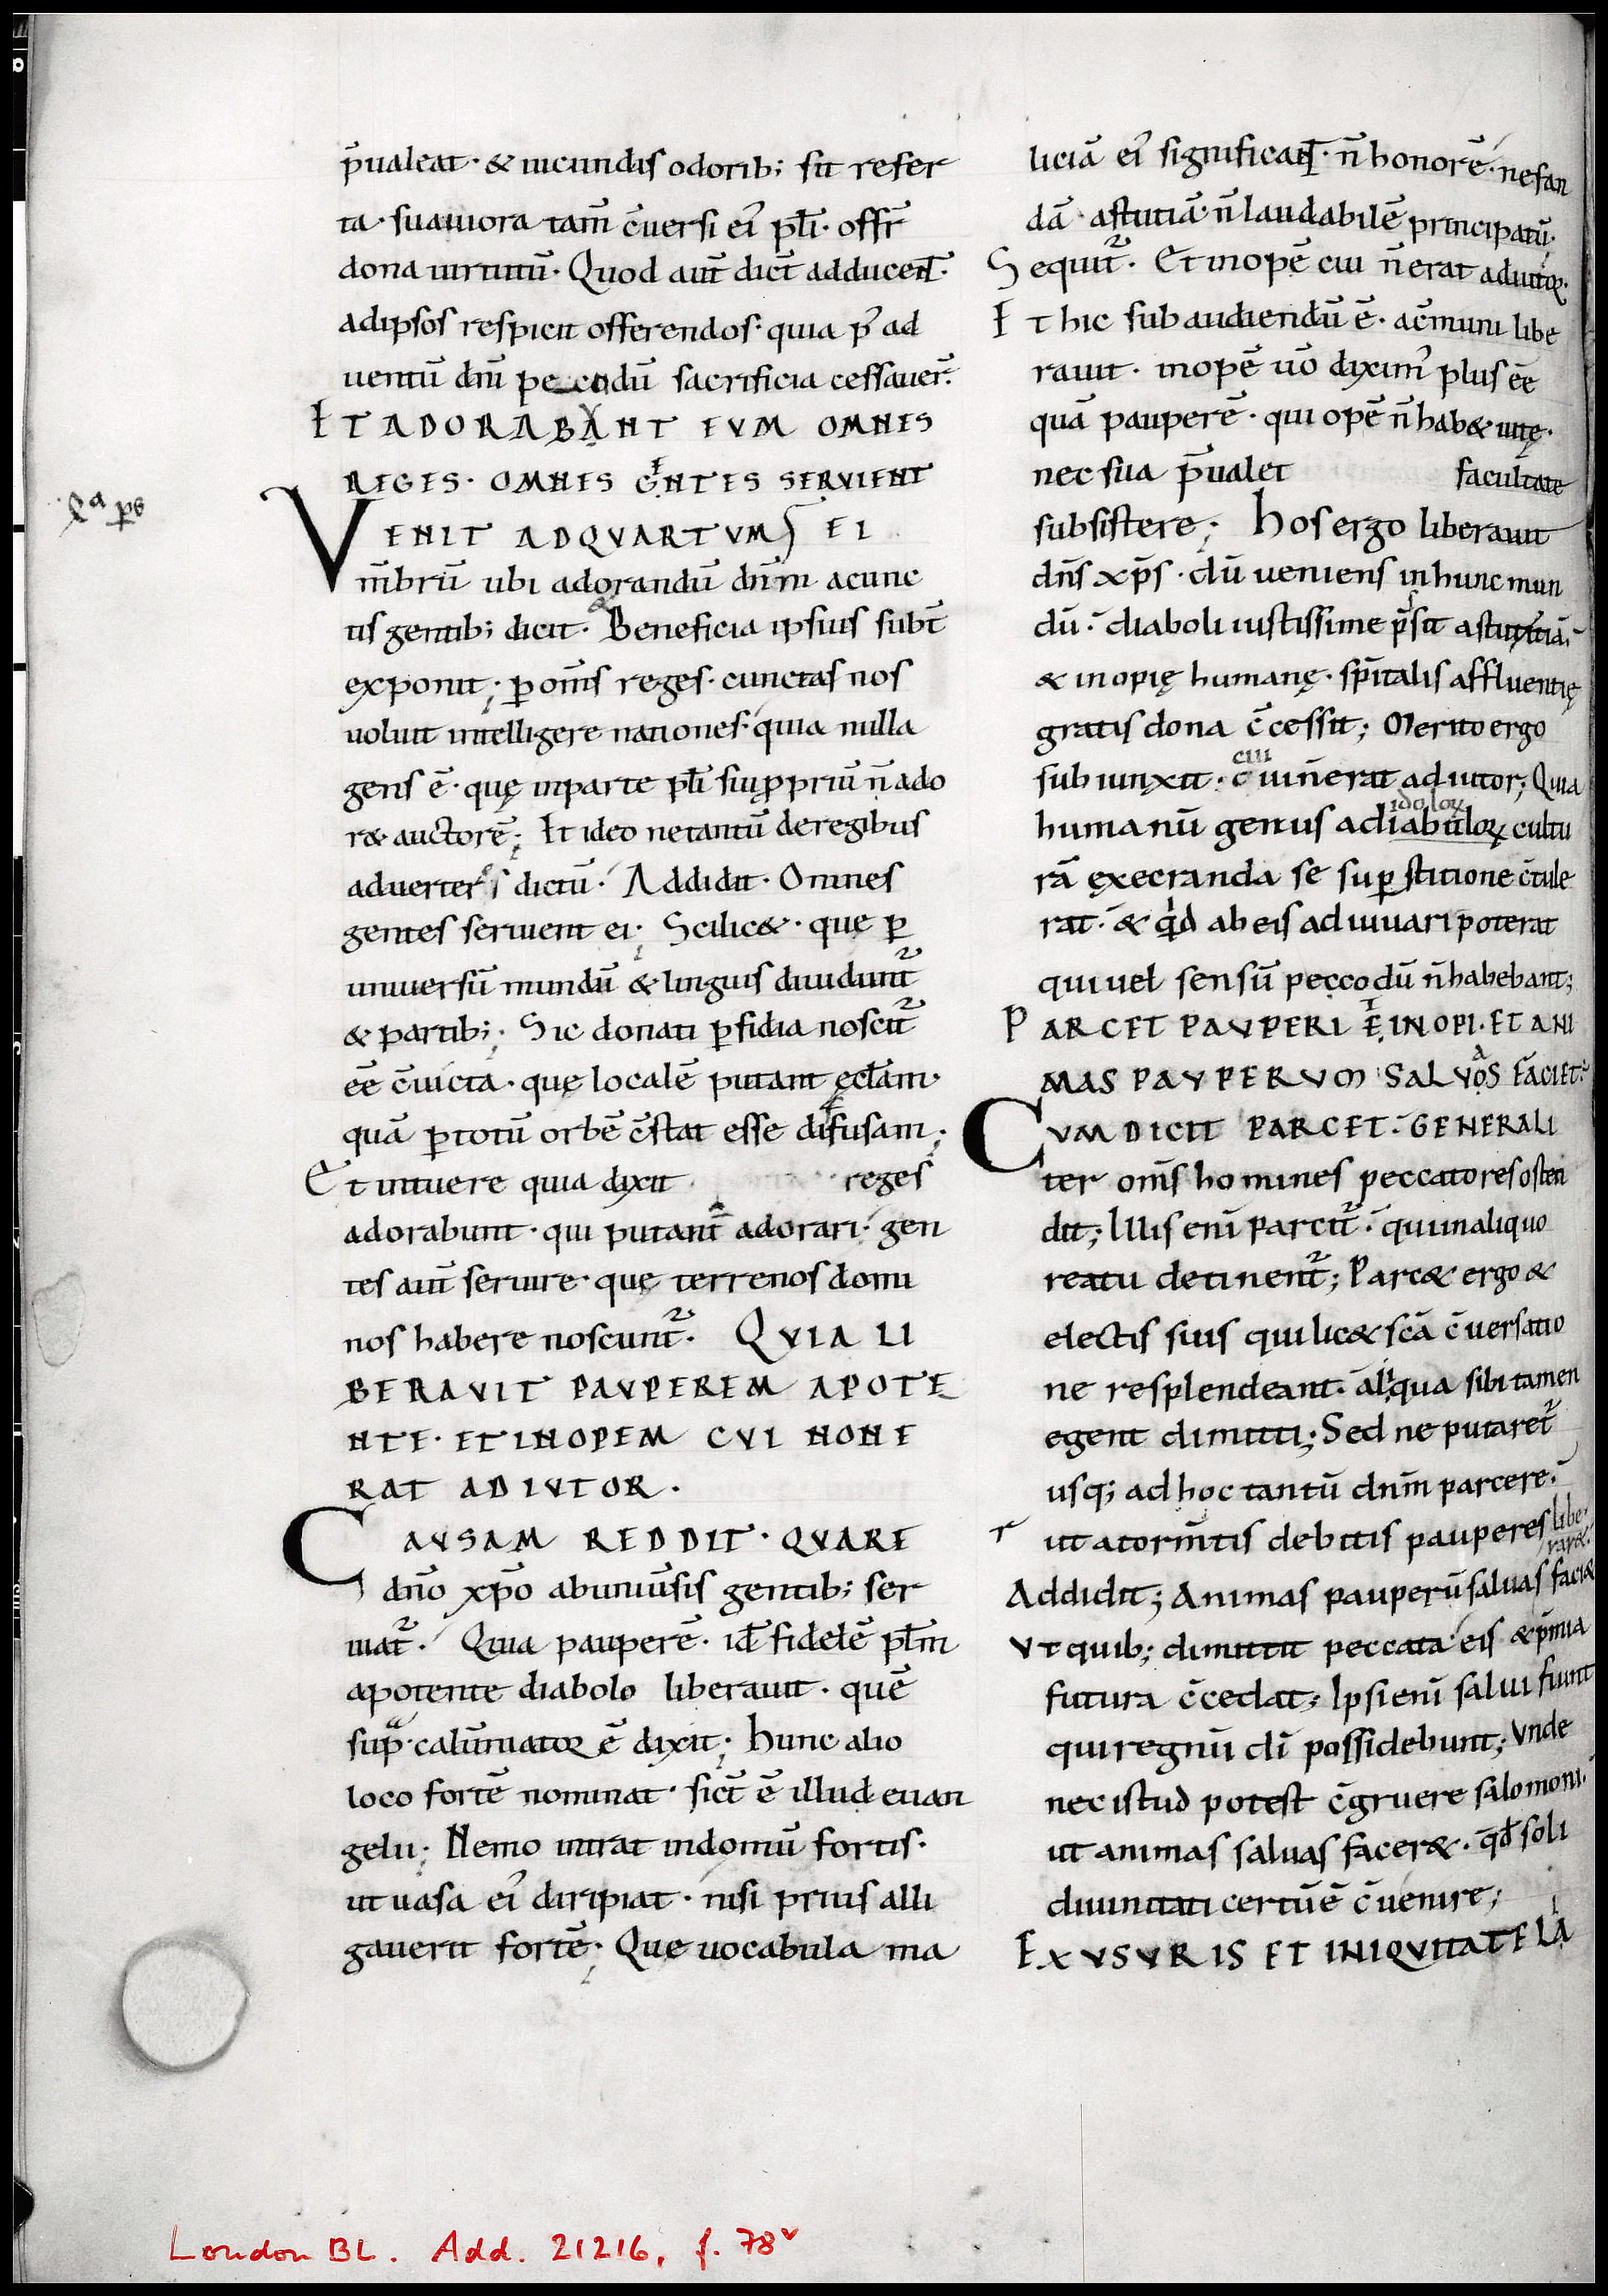 p̄ualeat · & iucundis odorib; sit refer
ta · suauiora tam̄ c̄uersi ei᾽ pl̄i · offr̄
dona uirtutū · Quod aut̄ dict̄ adducen̄t ·
adipsos respicit offerendos · quia p᾽ ad
uentū dn̄i pecodū sacrificia cessauer̄ ·
ET ADORABANT EVM OMNES
REGES · OMNES GENTES SERVIENT
Qª ps
VENIT ADQVARTVM EI
m̄brū ubi adorandū dn̄m acunc
tis gentib; dicit · Beneficia ipsius subt̄
exponit; ꝑ om̄s reges · cunctas nos
uoluit intelligere nationes · quia nulla
gens ē · quę inparte pl̄i sui ꝓpriū n̄ ado
r& auctorē; Et ideo netantū deregibus
aduerteres dictū · Addidit · Omnes
gentes seruient ei; Scilic& · quę ꝑ
uniuersū mundū & linguis diuidunt᷑
& partib; · Sic donati ꝑfidia noscit᷑
eē c̄uicta · quę localē putant ęcl̄am ·
quā ꝑtotū orbē c̄stat esse diffusam;
Et intuere quia dixit reges
adorabunt · qui putant̄ adorari · gen
tes aut̄ seruire · quę terrenos domi
nos habere noscunt᷑ · QVIA LI
BERAVIT PAVPEREM APOTE
NTE · ET INOPEM CVI NONE
RAT ADIVTOR ·
CAVSAM REDDIT · QVARE
dn̄o xp̄o abuniūsis gentib; ser
uiat᷑ · Quia pauperē · id ̄ fidelē pl̄m
apotente diabolo liberauit · quē
supª · calūniatoꝝ ē dixit; hunc alio
loco fortē nominat · sict̄ ē illud euan
gelii; Nemo intrat indomū fortis ·
ut uasa ei᾽ diripiat · nisi prius alli
gauerit fortē; Que uocabula ma
liciā ei᾽ significan̄t · n̄ honorē · nefan
dā · astutiā · n̄ laudabilē principatū ·
Sequit᷑ · Et inopē cui n̄ erat adiutoꝝ ·
Et hic subaudiendū ē · ac̄muni libe
rauit · inopē ūo dixim᾽ plus eē
quā pauperē · qui opē n̄ hab& uitę ·
nec sua p̄ualet facultate
subsistere; hos ergo liberauit
dn̄s xp̄s · dū ueniens in hunc mun
dū · diaboli iustissime p̄ssit astutiā ·
& inopię humanę · sp̄italis affluentię
gratis dona c̄cessit; Merito ergo
cui
subiunxit · c̄ uin̄erat adiutor; Quia
idoloꝝ
humanū genus adiabuloꝝ cultu
rā ęxecranda se suꝑstitione c̄tule
rat · & qid abeis adiuuari poterat
qui uel sensū peccodū n̄ habebant;
PARCET PAVPERI ET INOPI · ET ANI
MAS PAVPERVM SALVAS FACIET ·
CVM DICIT PARCET · GENERALI
ter om̄s homines peccatores osten
dit; Illis enī parcit᷑ · qui inaliquo
reatu detinent᷑; Parc& ergo &
electis suis qui lic& sc̄a c̄uersatio
ne resplendeant · aliqua sibi tamen
egent dimitti; Sed ne putaret᷑
usq; ad hoc tantū dn̄m parcere ·
r ut atorm̄tis debitis pauperes libe
rar& ·
Addidit; Animas pauperū saluas faci&
Vt quib; dimittit peccata eis & p̄mia
futura c̄cedat; Ipsi enī salui fiunt
qui regnū dī possidebunt; Vnde
nec istud potest c̄gruere salomoni ·
ut animas saluas facer& · qd̄ soli
diuinitati certū ē c̄uenire;
EX VSVRIS ET INIQVITATE LA
London BL. Add. 21216, f. 78ᵛ